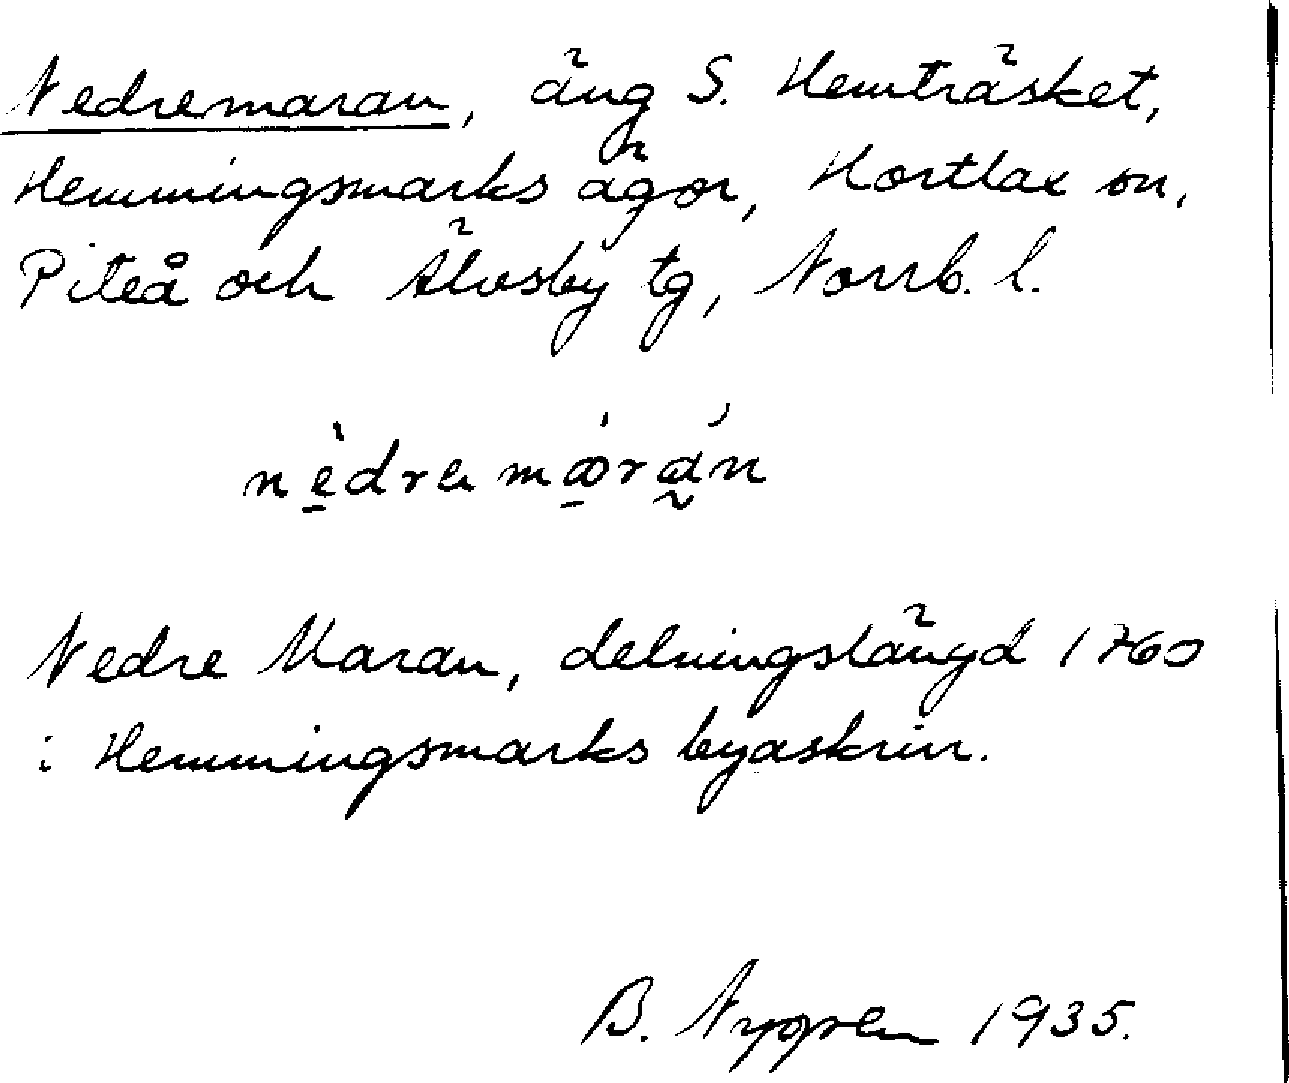 Nedremaran, äng S. Hemträsket,
Hemmingsmarks ägor, Hortlax sn,
Piteå och Älvsby tg, Norrb. l.
nè̠dra mœ̠́rá̰n
Nedre Maran, delningslängd 1760
i Hemmingsmarks byaskrin.
B. Nygren 1935.